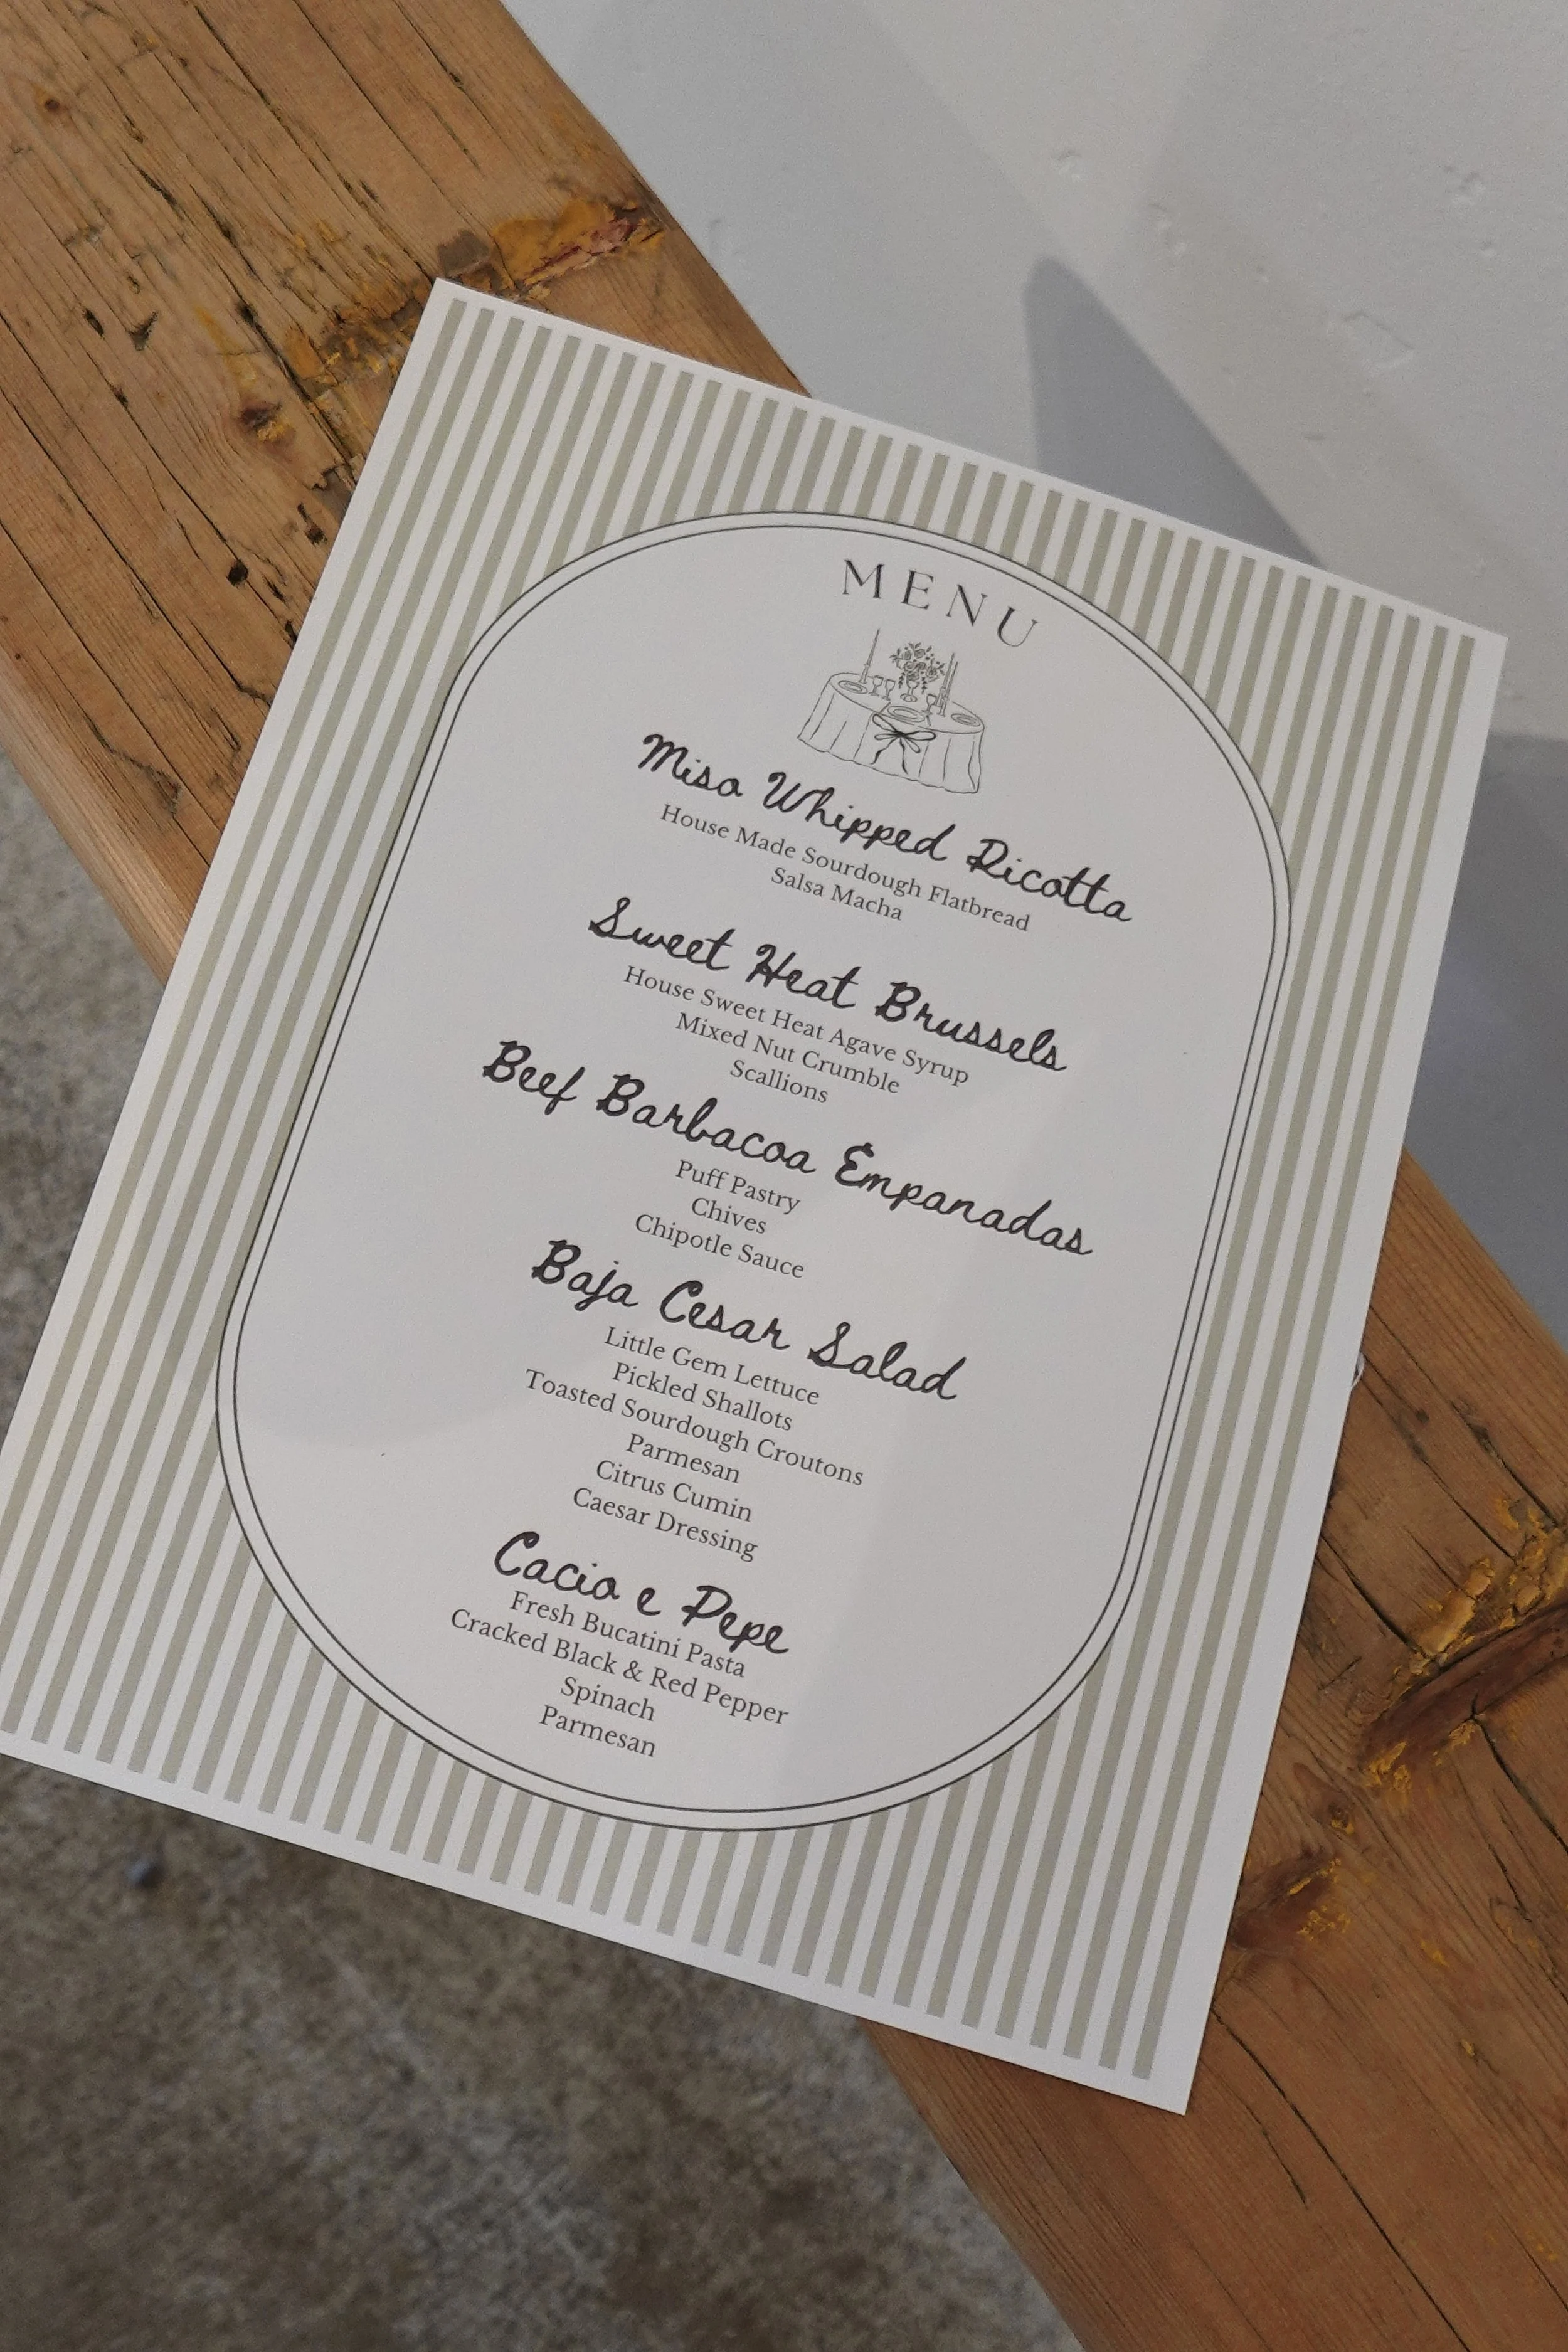 MENU
Miso Whipped Ricotta
House Made Sourdough Flatbread
Salsa Macha
Sweet Heat Brussels
House Sweet Heat Agave Syrup
Mixed Nut Crumble
Scallions
Beef Barbacoa Empanadas
Puff Pastry
Chives
Chipotle Sauce
Baja Cesar Salad
Little Gem Lettuce
Pickled Shallots
Toasted Sourdough Croutons
Parmesan
Citrus Cumin
Caesar Dressing
Cacio e Pepe
Fresh Bucatini Pasta
Cracked Black & Red Pepper
Spinach
Parmesan